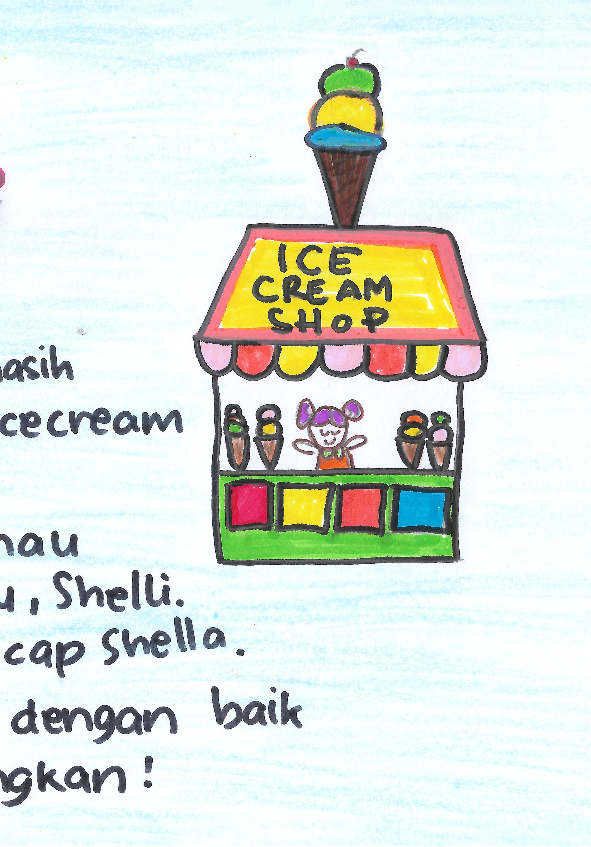 ICE
CREAM
SHOP
asih
cecream
au
u, Shelli.
cap Shella.
dengan baik
ngkan!